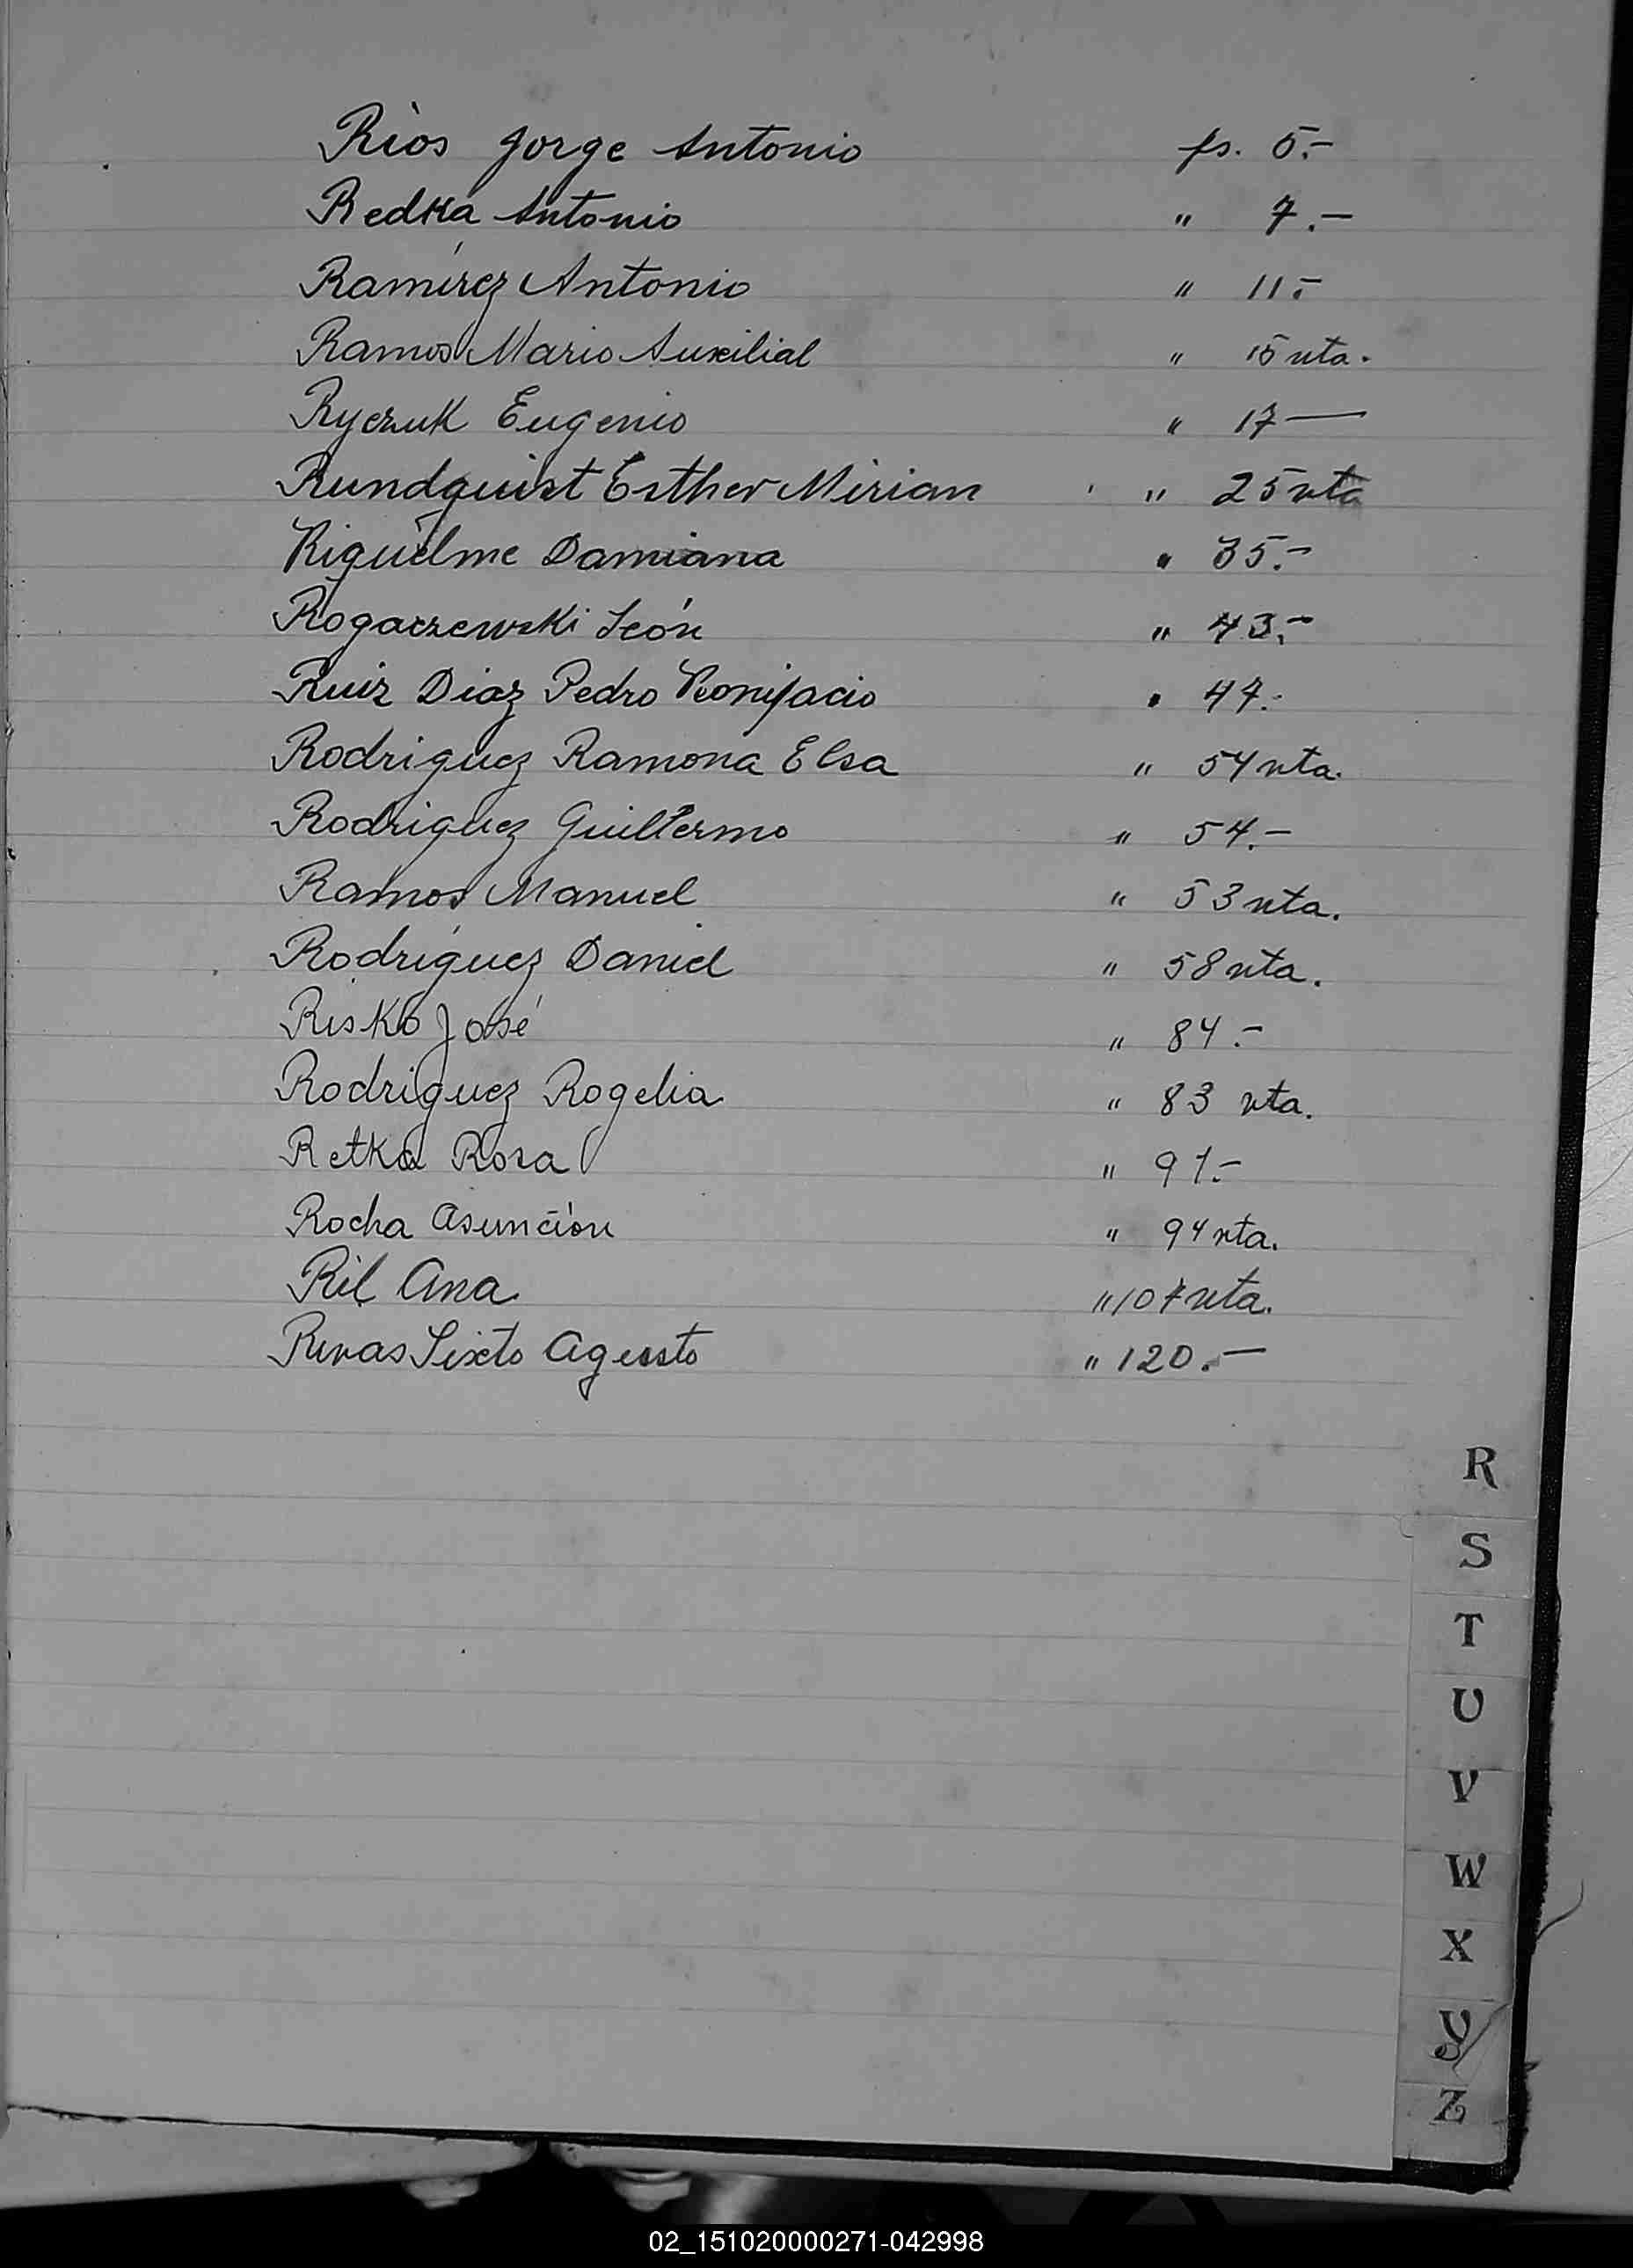 Ríos Jorge Antonio fs. 5.-
Redka Antonio " 7.-
Ramírez Antonio " 11.-
Ramos Mario Auxilial " 15 vta.
Ryczuk Eugenio " 17 —
Rundquist Esther Mirian " 25 vta
Riquelme Damiana " 35.-
Rogaczewski León " 43.-
Ruiz Diaz Pedro Bonifacio " 47.-
Rodriguez Ramona Elsa " 54 vta.
Rodriguez Guillermo " 54.-
Ramos Manuel " 53 vta.
Rodríguez Daniel " 58 vta.
Risko José " 84.-
Rodriguez Rogelia " 83 vta.
Retka Rosa " 91.-
Rocha Asunción " 94 vta.
Ril Ana " 107 vta.
Rivas Sixto Agusto " 120.-
R
S
T
U
V
W
X
Y
Z
02_151020000271-042998